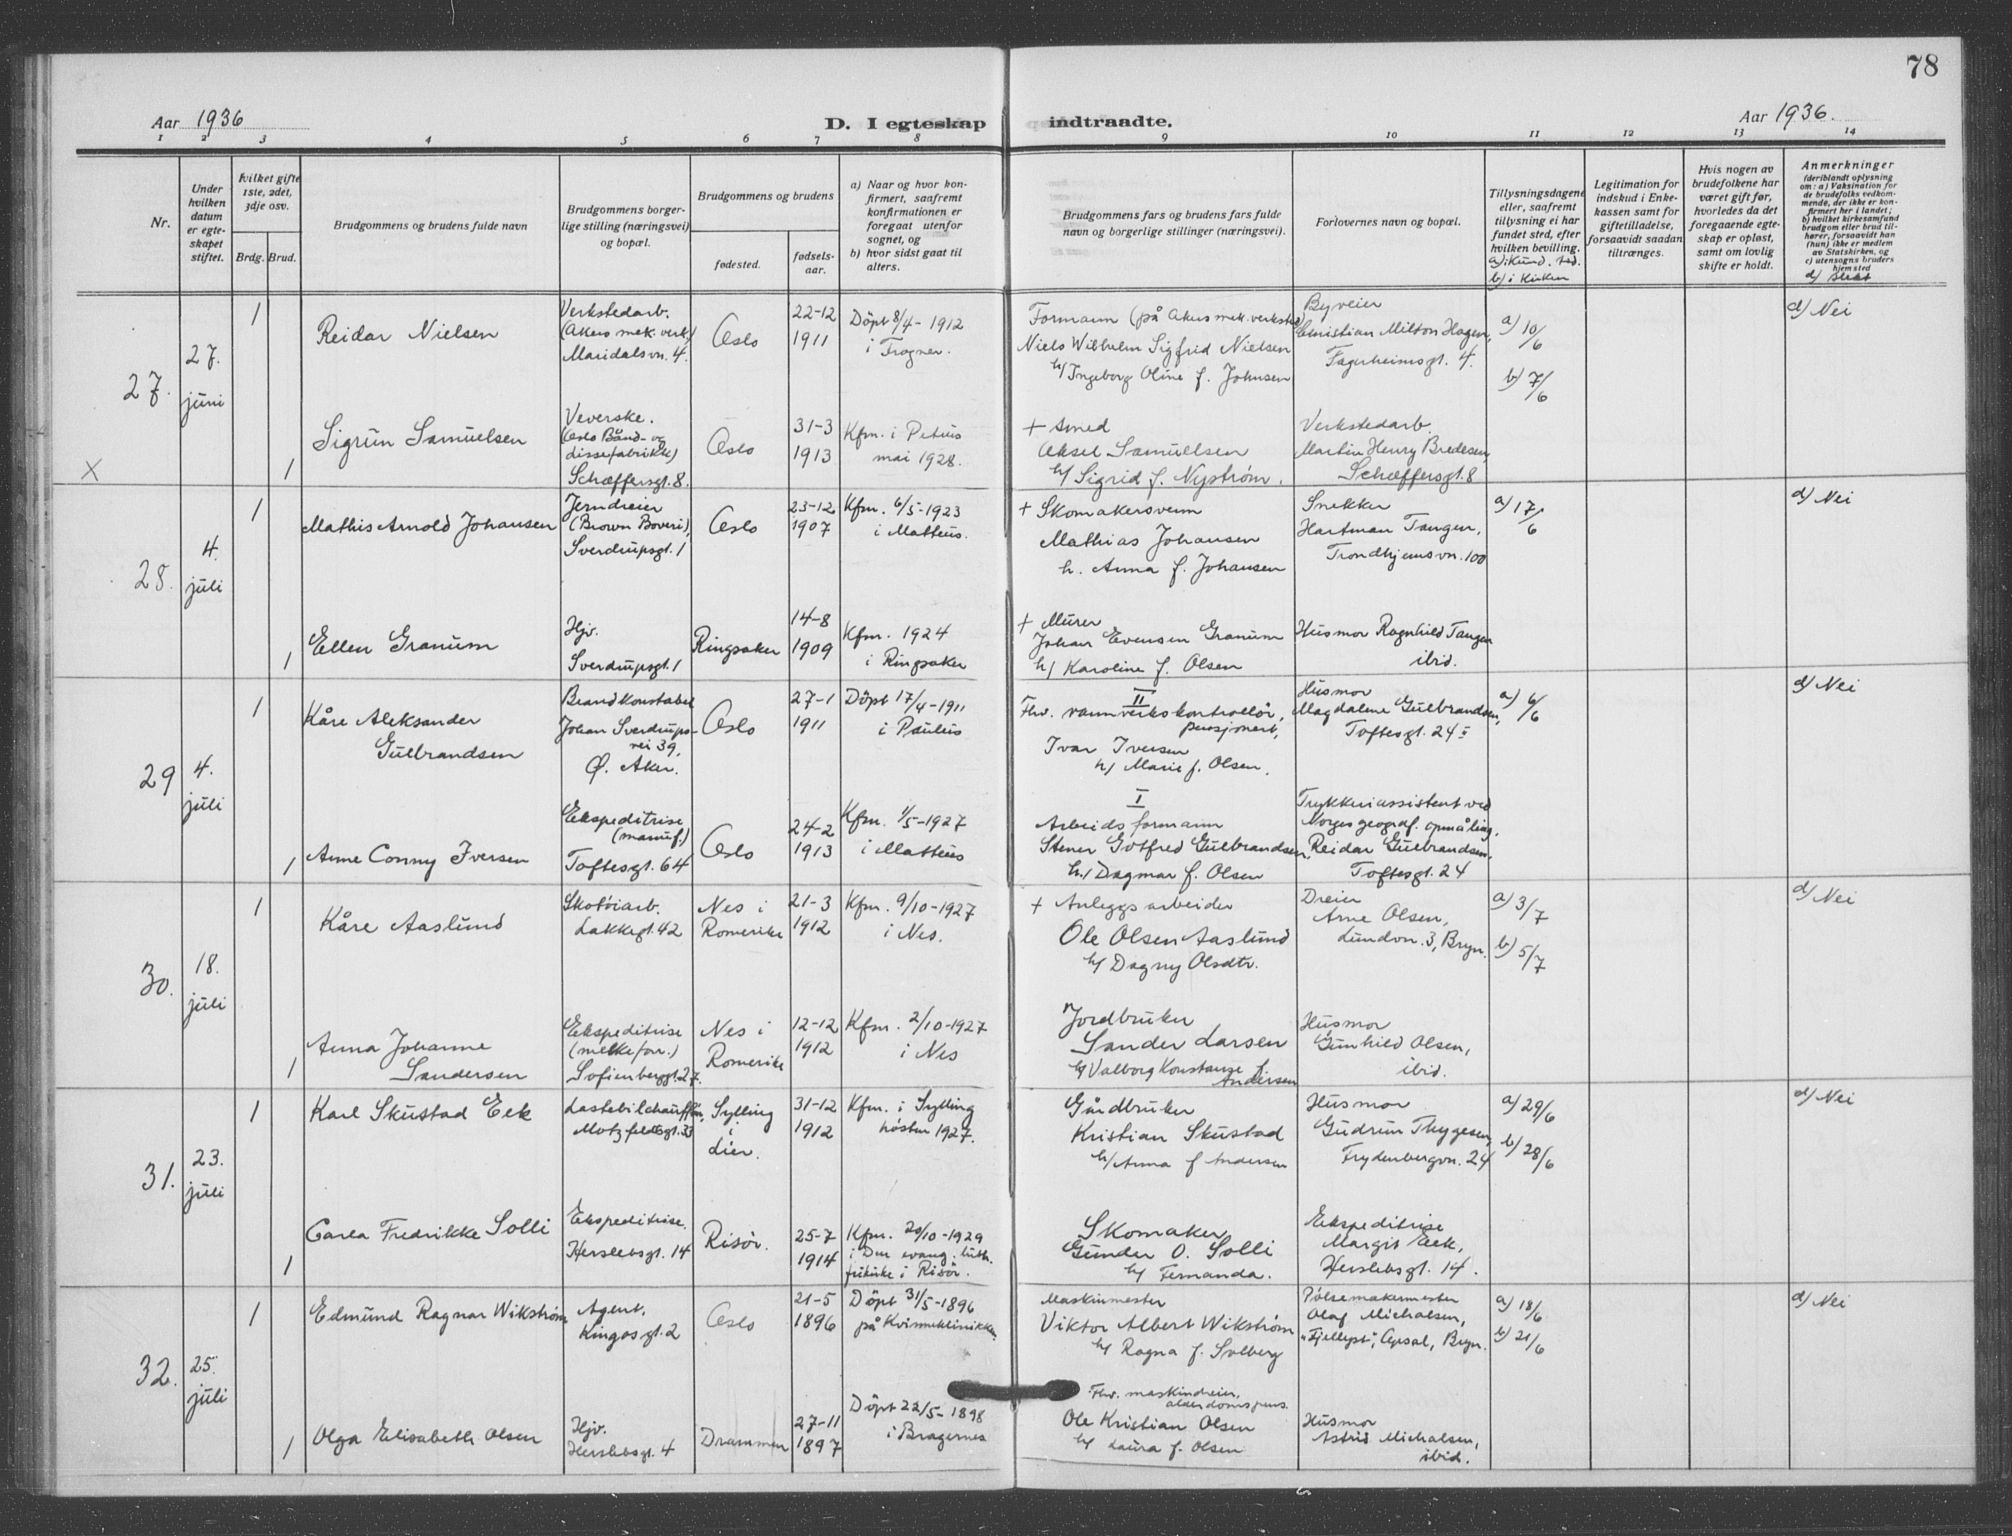 78
Aar 1936
D. I egteskap indtraadte.
Aar 1936.
1 2 3 4 5 6 7 8 9 10 11 12 13 14
Nr.
Under hvilken datum er egteskapet stiftet.
Hvilket gifte 1ste, 2det, 3dje osv.
Brdg. Brud.
Brudgommens og brudens fulde navn
Brudgommens borgerlige stilling (næringsvei) og bopæl.
Brudgommens og brudens
fødested.
fødselsaar.
a) Naar og hvor konfirmert, saafremt konfirmationen er foregaat utenfor sognet, og
b) hvor sidst gaat til alters.
Brudgommens fars og brudens fars fulde navn og borgerlige stillinger (næringsvei).
Forlovernes navn og bopæl.
Tillysningsdagene eller, saafremt tillysning ei har fundet sted, efter hvilken bevilling.
b) i Kirken
Legitimation for indskud i Enkekassen samt for giftetilladelse, forsaavidt saadan tiltrænges.
Hvis nogen av brudefolkene har været gift før, hvorledes da det foregaaende egteskap er opløst, samt om lovlig skifte er holdt.
Anmerkninger
(deriblandt oplysning om: a) Vaksination for de brudefolks vedkommende, der ikke er konfirmert her i landet; b) hvilket kirkesamfund brudgom eller brud tilhører, forsaavidt han (hun) ikke er medlem av Statskirken, og c) utensogns bruders hjemsted
d) Slekt
27.
27. juni
1
Reidar Nielsen
Verkstedarb.
(Akers mek. verk.)
Maridalsvn. 4.
Oslo
22-12
1911
Döpt 8/4-1912
i Frogner.
Formann (på Akers mek. verksted)
Niels Wilhelm Sigfrid Nielsen
h/ Ingeborg Oline f. Johnsen
Byveier
Christian Milton Hagen,
Fagerheimsgt. 4.
a) 10/6
b) 7/6
d) Nei
X
1
Sigrun Samuelsen
Veverske.
(Oslo Bånd- og
Lissefabrikk)
Schæffersgt. 8.
Oslo
31-3
1913
Kfm. i Petrus
mai 1928.
+ Smed
Aksel Samuelsen
h/ Sigrid f. Nyström.
Verkstedarb.
Martin Henry Bredesen,
Schæffersgt. 8
28.
4. juli
1
Mathis Arnold Johansen
Jerndreier
(Brown Boveri),
Sverdrupsgt. 1
Oslo
23-12
1907
Kfm. 6/5-1923
i Matteus.
+ Skomakersvenn
Mathias Johansen
h. Anna f. Johansen
Snekker
Hartman Tangen,
Trondhjemsvn. 100
a) 17/6
d) Nei
1
Ellen Granum
Hjv.
Sverdrupsgt. 1
Ringsaker
14-8
1909
Kfm. 1924
i Ringsaker
+ Murer
Johan Evensen Granum
h/ Karoline f. Olsen
Husmor Ragnhild Tangen
ibid.
29
4. juli
1
Kåre Aleksander
Gulbrandsen
Brandkonstabel
Johan Sverdrups-
vei 39,
Ø. Aker.
Oslo
27-1
1911
Döpt 17/4-1911
i Paulus
II
Fhv. vannverkskontrollör,
pensjonert,
Ivar Iversen
h/ Marie f. Olsen.
Husmor
Magdalene Gulbrandsen,
Toftesgt. 24 I
a) 6/6
d) Nei
1
Anne Conny Iversen
Ekspeditrise
(manuf.)
Toftesgt. 64
Oslo
24-2
1913
Kfm. 1/5-1927
i Matteus
I
Arbeidsformann
Stener Gotfred Gulbrandsen,
h./ Dagmar f. Olsen
Trykkeriassistent ved
Norges geograf. opmåling,
Reidar Gulbrandsen,
Toftesgt. 24
30.
18. juli
1
Kåre Aaslund
Skotöiarb.
Lakkegt. 42
Nes i
Romerike
21-3
1912
Kfm. 9/10-1927
i Nes.
+ Anleggsarbeider
Ole Olsen Aaslund
h/ Dagny Olsdtr.
Dreier
Arne Olsen,
Lundvn. 3, Bryn.
a) 3/7
b) 5/7
d) Nei
1
Anna Johanne
Sandersen
Ekspeditrise
(melkeforr.)
Sofienberggt. 27.
Nes i
Romerike
12-12
1912
Kfm. 2/10-1927
i Nes
Jordbruker
Sander Larsen
h/ Valborg Konstanse f.
Andersen
Husmor
Gunhild Olsen,
ibid.
31.
23. juli
1
Karl Skustad Eek
Lastebilchaufför,
Motzfeldtsgt. 33
Sylling
i
Lier.
31-12
1912
Kfm. i Sylling
hösten 1927.
Gårdbruker
Kristian Skustad
h/ Anna f Andersen
Husmor
Gudrun Thygesen,
Frydenbergvn. 24
a) 29/6
b) 28/6
d) Nei
1
Carla Fredrikke Solli
Ekspeditrise.
Herslebsgt. 14
Risör.
25-7
1914
Kfm. 20/10-1929
i Den evang. luth.
frikirke i Risör.
Skomaker
Gunder O. Solli
h/ Fernanda.
Ekspeditrise
Margit Eek,
Herslebsgt. 14.
32.
25. juli
1
Edmund Ragnar Wikström
Agent,
Kingosgt. 2
Oslo
21-5
1896
Döpt 31/5-1896
på Kvinneklinikken.
Maskinmester
Viktor Albert Wikström
h/ Ragna f. Solberg
Pölsemakermester
Olaf Michalsen,
Bryn.
a) 18/6
b) 21/6
d) Nei
1
Olga Elisabeth Olsen
Hjv.
Herslebsgt. 4
Drammen
27-11
1897
Döpt 22/5-1898
i Bragernes
Fhv. maskindreier,
alderdomspens.
Ole Kristian Olsen
h/ Laura f. Olsen
Husmor
Astrid Michalsen,
ibid.